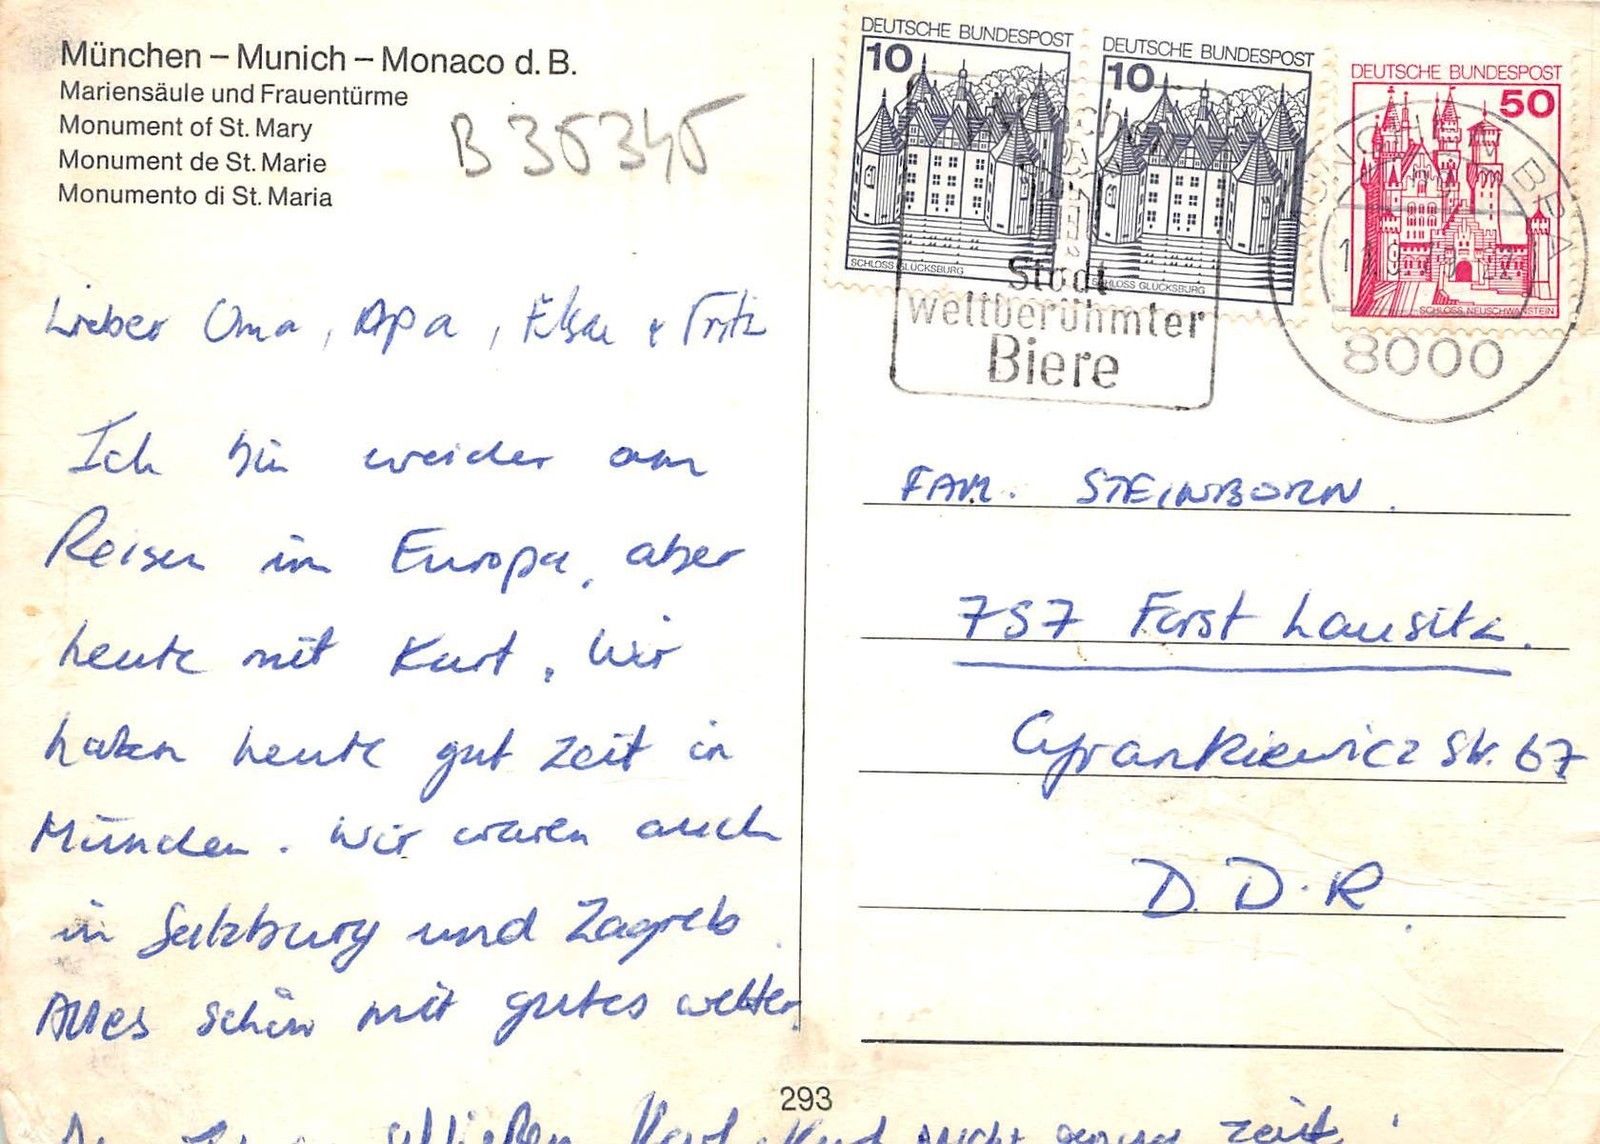 München – Munich – Monaco d. B.
Mariensäule und Frauentürme
Monument of St. Mary
Monument de St. Marie
Monumento di St. Maria
B 35345
DEUTSCHE BUNDESPOST
10
SCHLOSS GLÜCKSBURG
DEUTSCHE BUNDESPOST
10
SCHLOSS GLÜCKSBURG
DEUTSCHE BUNDESPOST
50
SCHLOSS NEUSCHWANSTEIN
Stadt
weltberühmter
Biere
MÜNCHEN BPA
8000
Lieber Oma, Opa, Elsa + Fritz
Ich bin weider am
Reisen im Europa, aber
heute mit Kurt. Wir
haben heute gut zeit in
München. Wir waren auch
in Salzburg und Zagreb.
Alles schön mit gutes wetter.
schließen Kurt nicht genug zeit!
FAM. STEINBORN.
757 Forst Lausitz.
Cyrankiewicz Str. 67
D.D.R.
293